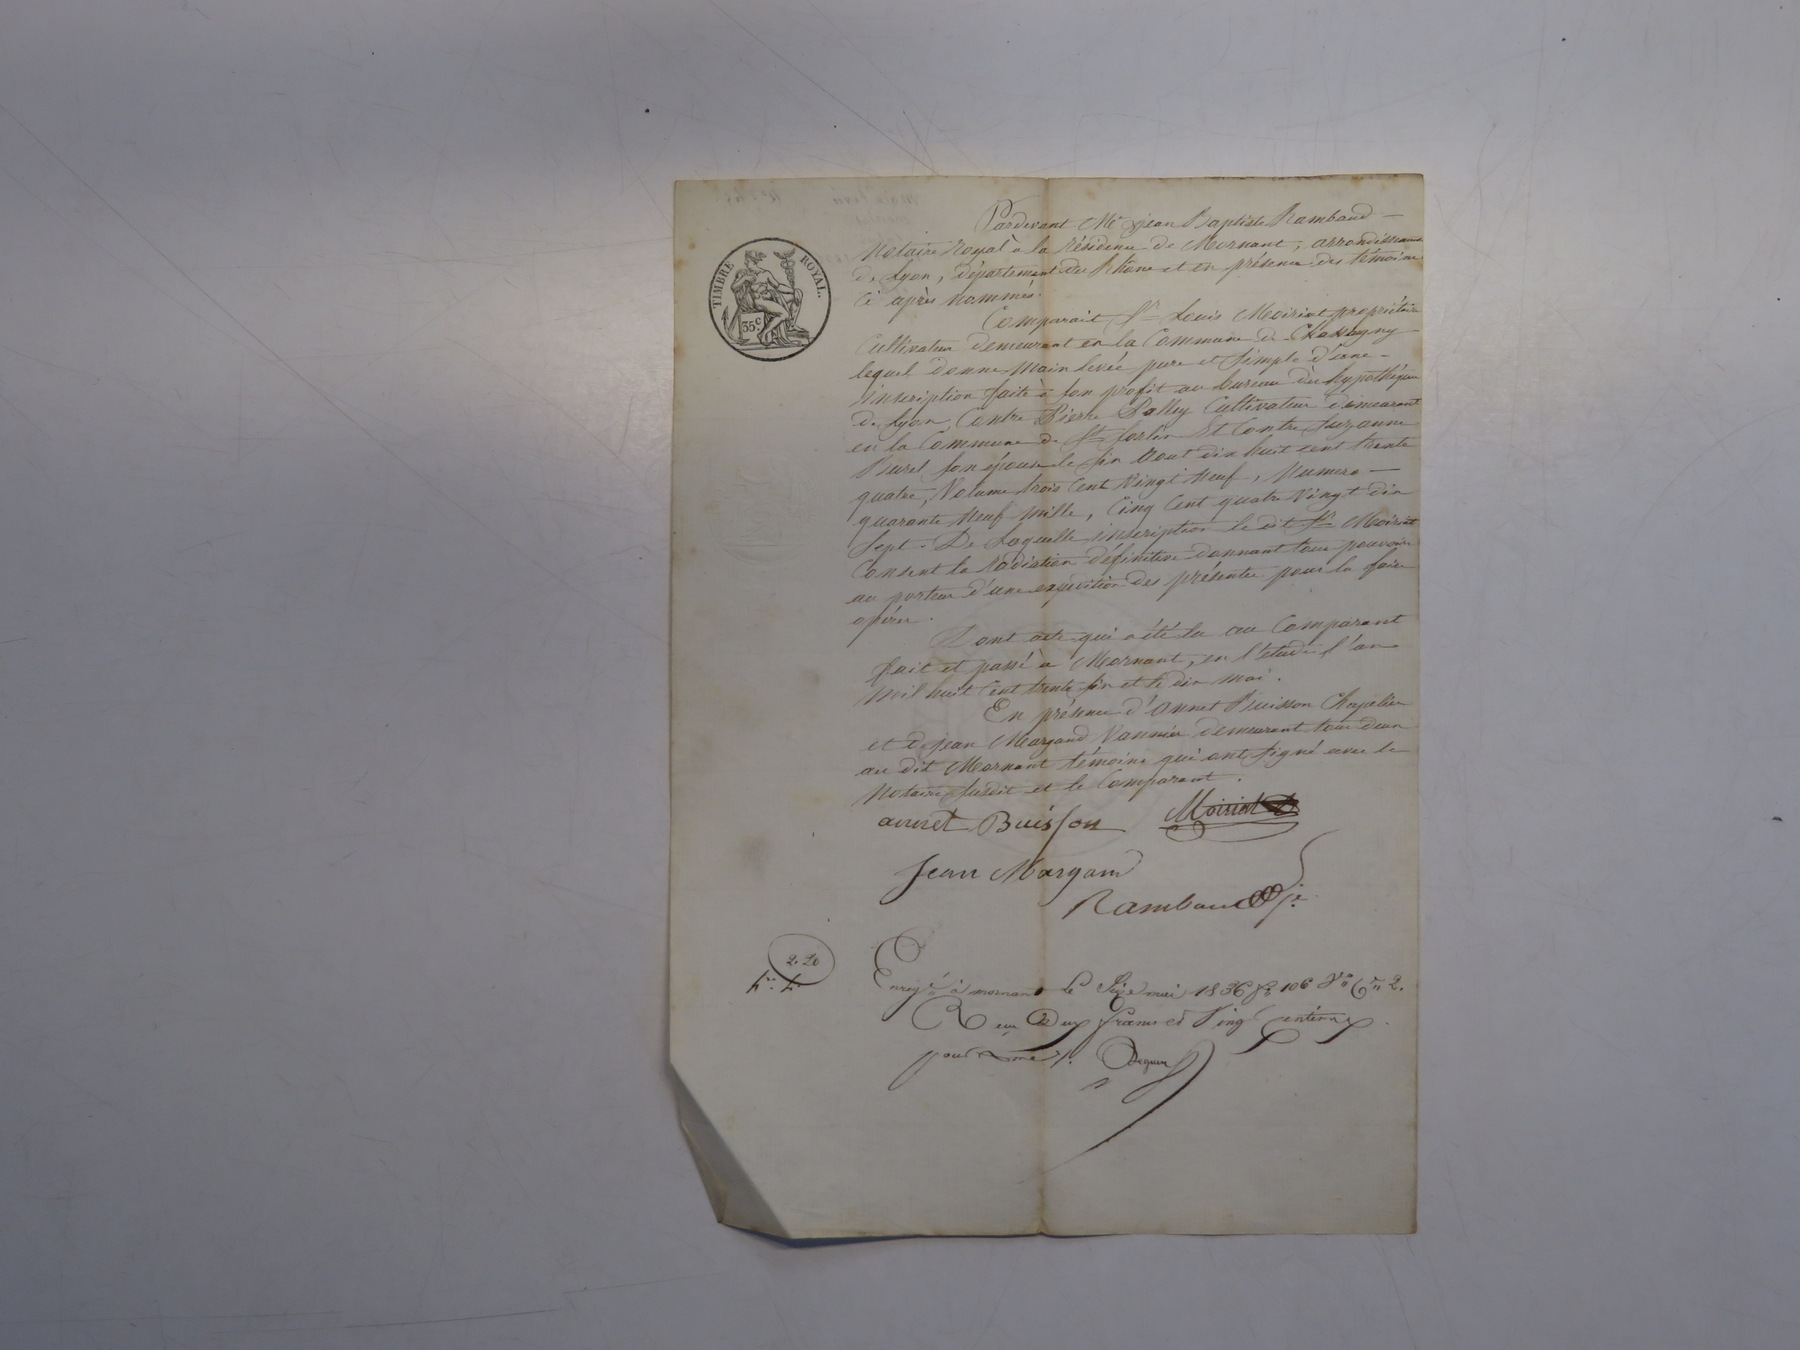 TIMBRE ROYAL.
35c
Pardevant Me Jean Baptiste Rambaud —
Notaire Royal à la résidence de Mornant, arrondissement
de Lyon, département du Rhône et en présence des témoins
ci après nommés.
Comparait Sr Louis Moiriat propriétaire
Cultivateur demeurant en la Commune de Chassagny —
lequel donne main levée pure et simple d'une —
inscription faite à son profit au bureau des hypothèques
de Lyon, Contre Pierre Cultivateur demeurant
en la Commune de St Sorlin Et Contre Suzanne
Burel son épouse le six Aout dix huit cent trente
quatre, Volume trois Cent Vingt Neuf, Numero —
quarante Neuf mille, Cinq Cent quatre Vingt dix
Sept. De Laquelle inscription le dit Sr Moiriat
Consent la radiation définitive donnant tous pouvoirs
au porteur d'une expédition des présentes pour la faire
opérer.
Dont acte qui a été lu au Comparant
fait et passé à Mornant, en l'étude l'an
mil huit Cent trente six et le dix mai.
En présence d'Annet Buisson Chapelier
et de Jean Margand Vannier demeurant tous deux
au dit Mornant témoins qui ont signé avec le
Notaire susdit et le Comparant.
annet Buisson Moiriat
Jean Margand
Rambaud
2.20
Enregé à mornant le Seize mai 1836 fo 106 Vo Ce 2.
Reçu Deux francs et Vingt centimes
pour